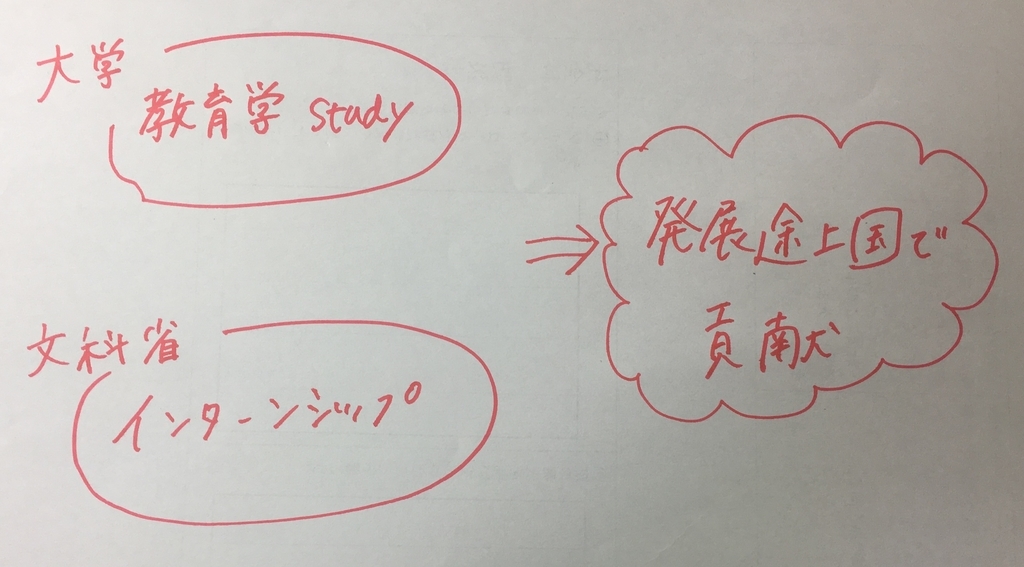 大学
教育学 study
文科省
インターンジップ
⇒
発展途上国で
貢献